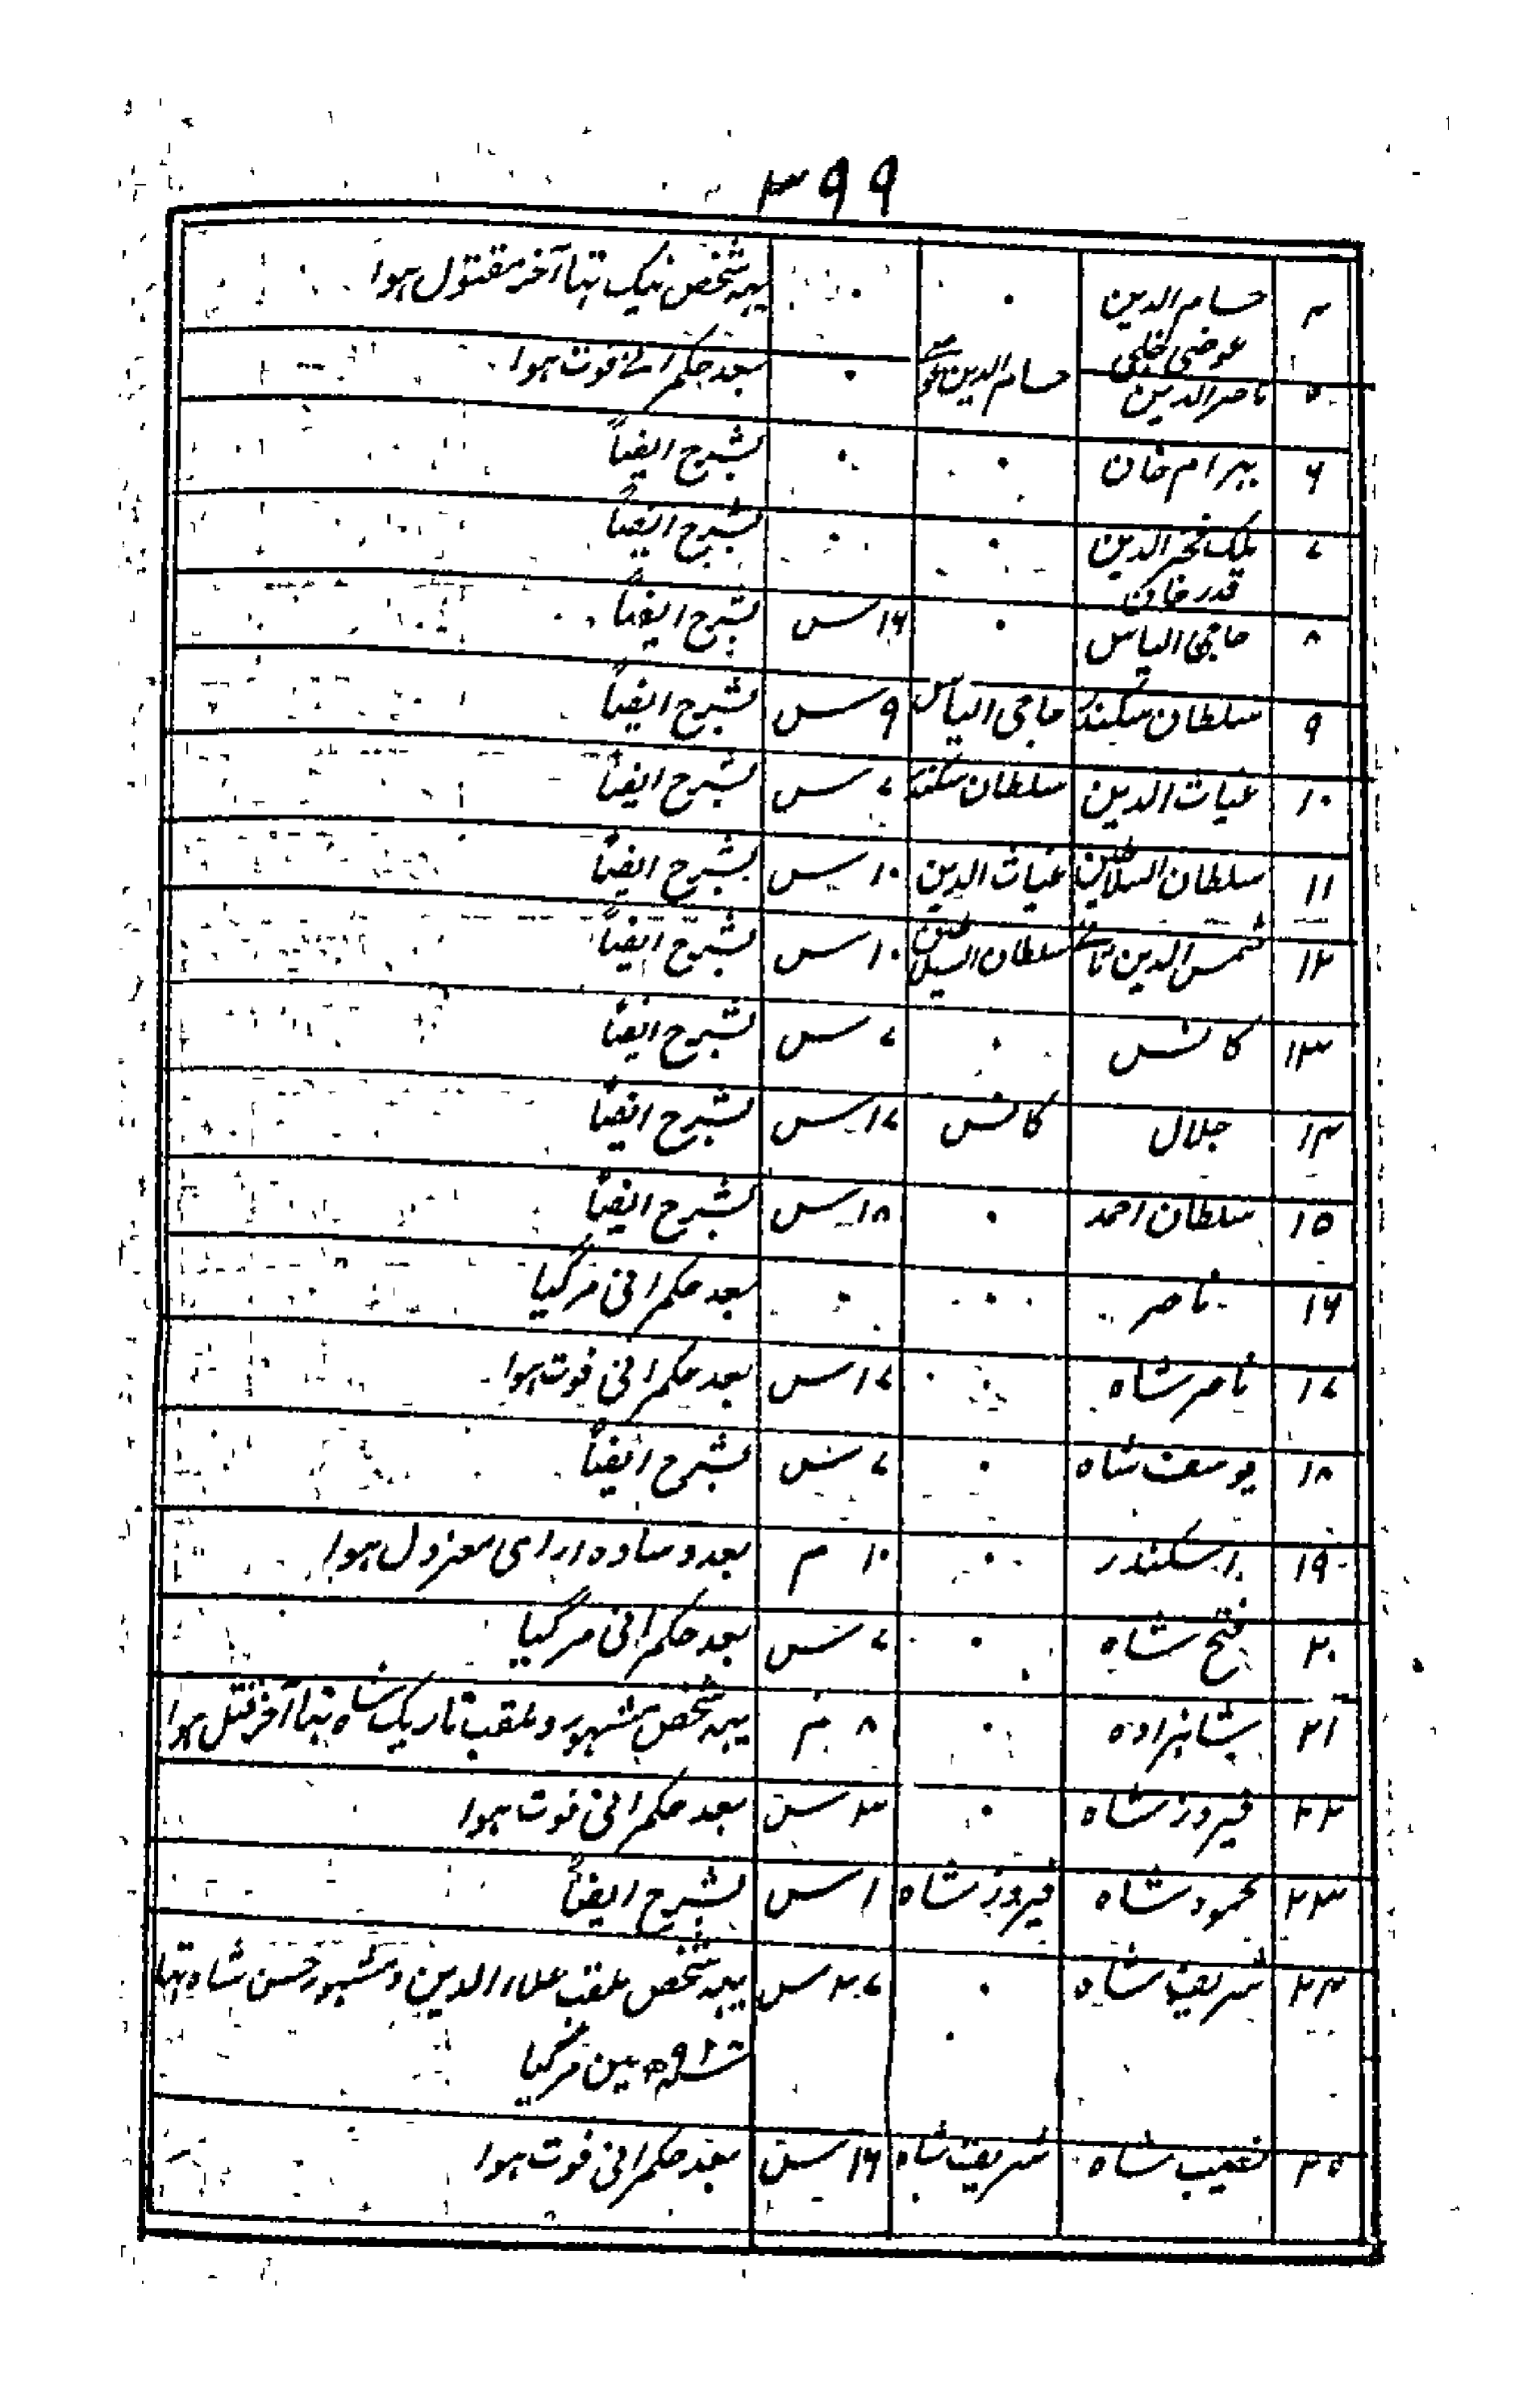 ۳۹۹
۴ حسام الدین عوضی خلجی ۰ ۰ یہہ شخص نیک تہا آخر مقتول ہوا
۵ ناصر الدین حسام الدین ۰ بعد حکمرانی فوت ہوا
۶ بہرام خان ۰ ۰ بشرح ایضاً
۷ ملک فخر الدین قدر خان ۰ ۰ بشرح ایضاً
۸ حاجی الیاس ۰ ۱۶ س بشرح ایضاً
۹ سلطان سکندر حاجی الیاس ۹ س بشرح ایضاً
۱۰ غیاث الدین سلطان سکندر ۷ س بشرح ایضاً
۱۱ سلطان السلاطین غیاث الدین ۱۰ س بشرح ایضاً
۱۲ شمس الدین سلطان السلاطین ۱۰ س بشرح ایضاً
۱۳ کانس ۰ ۷ س بشرح ایضاً
۱۴ جلال کانس ۱۷ س بشرح ایضاً
۱۵ سلطان احمد ۰ ۱۸ س بشرح ایضاً
۱۶ ناصر ۰ ۰ بعد حکمرانی مرگیا
۱۷ ناصر شاہ ۰ ۱۷ س بعد حکمرانی فوت ہوا
۱۸ یوسف شاہ ۰ ۷ س بشرح ایضاً
۱۹ اسکندر ۰ ۱۰ م بعد وسادہ ارای معزول ہوا
۲۰ فتح شاہ ۰ ۷ س بعد حکمرانی مرگیا
۲۱ شاہزادہ ۰ ۸ م یہہ شخص مشہور و ملقب تاریک شاہ تہا آخر قتل ہوا
۲۲ فیروز شاہ ۰ ۳ س بعد حکمرانی فوت ہوا
۲۳ محمود شاہ فیروز شاہ ۱ س بشرح ایضاً
۲۴ شریف شاہ ۰ ۲۷ س یہہ شخص ملقب علاء الدین و مشہور حسن شاہ تہا
مین مرگیا
۲۵ نصیب شاہ شریف شاہ ۱۶ س بعد حکمرانی فوت ہوا